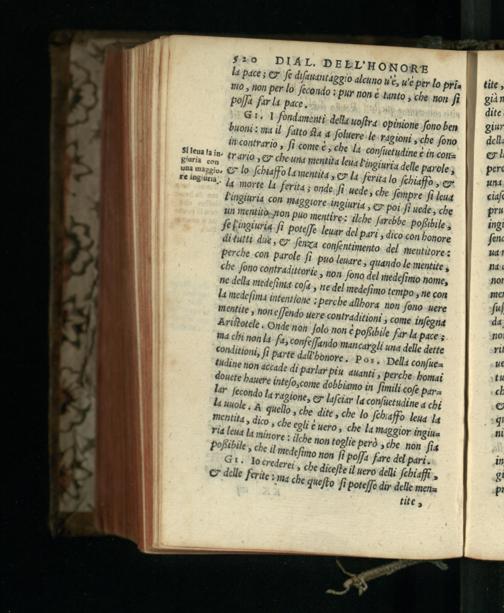 520 DIAL. DELL'HONORE
la pace; & se disauantaggio alcuno u'è, u'è per lo pri-
mo, non per lo secondo: pur non è tanto, che non si
possa far la pace.
GI. I fondamenti della uostra opinione sono ben
buoni: ma il fatto sta a soluere le ragioni, che sono
in contrario, si come è, che la consuetudine è in con-
trario, & che una mentita leua l'ingiuria delle parole,
& lo schiaffo la mentita, & la ferita lo schiaffo, &
la morte la ferita: onde si uede, che sempre si leua
l'ingiuria con maggiore ingiuria, & poi si uede, che
un mentito non puo mentire: ilche sarebbe possibile,
se l'ingiuria si potesse leuar del pari, dico con honore
di tutti due, & senza consentimento del mentitore:
perche con parole si puo leuare, quando le mentite,
che sono contradittorie, non sono del medesimo nome,
ne della medesima cosa, ne del medesimo tempo, ne con
la medesima intentione: perche allhora non sono uere
mentite, non essendo uere contraditioni, come insegna
Aristotele. Onde non solo non è possibile far la pace;
ma chi non la fa, confessando mancargli una delle dette
conditioni, si parte dall'honore. POS. Della consue-
tudine non accade di parlar piu auanti, perche homai
douete hauere inteso, come dobbiamo in simili cose par-
lar secondo la ragione, & lasciar la consuetudine a chi
la uuole. A quello, che dite, che lo schiaffo leua la
mentita, dico, che egli è uero, che la maggior ingiu-
ria leua la minore: ilche non toglie però, che non sia
possibile, che il medesimo non si possa fare del pari.
GI. Io crederei, che diceste il uero delli schiaffi,
& delle ferite: ma che questo si potesse dir delle men-
tite,
Si leua la in-
giuria con
una maggio-
re ingiuria.